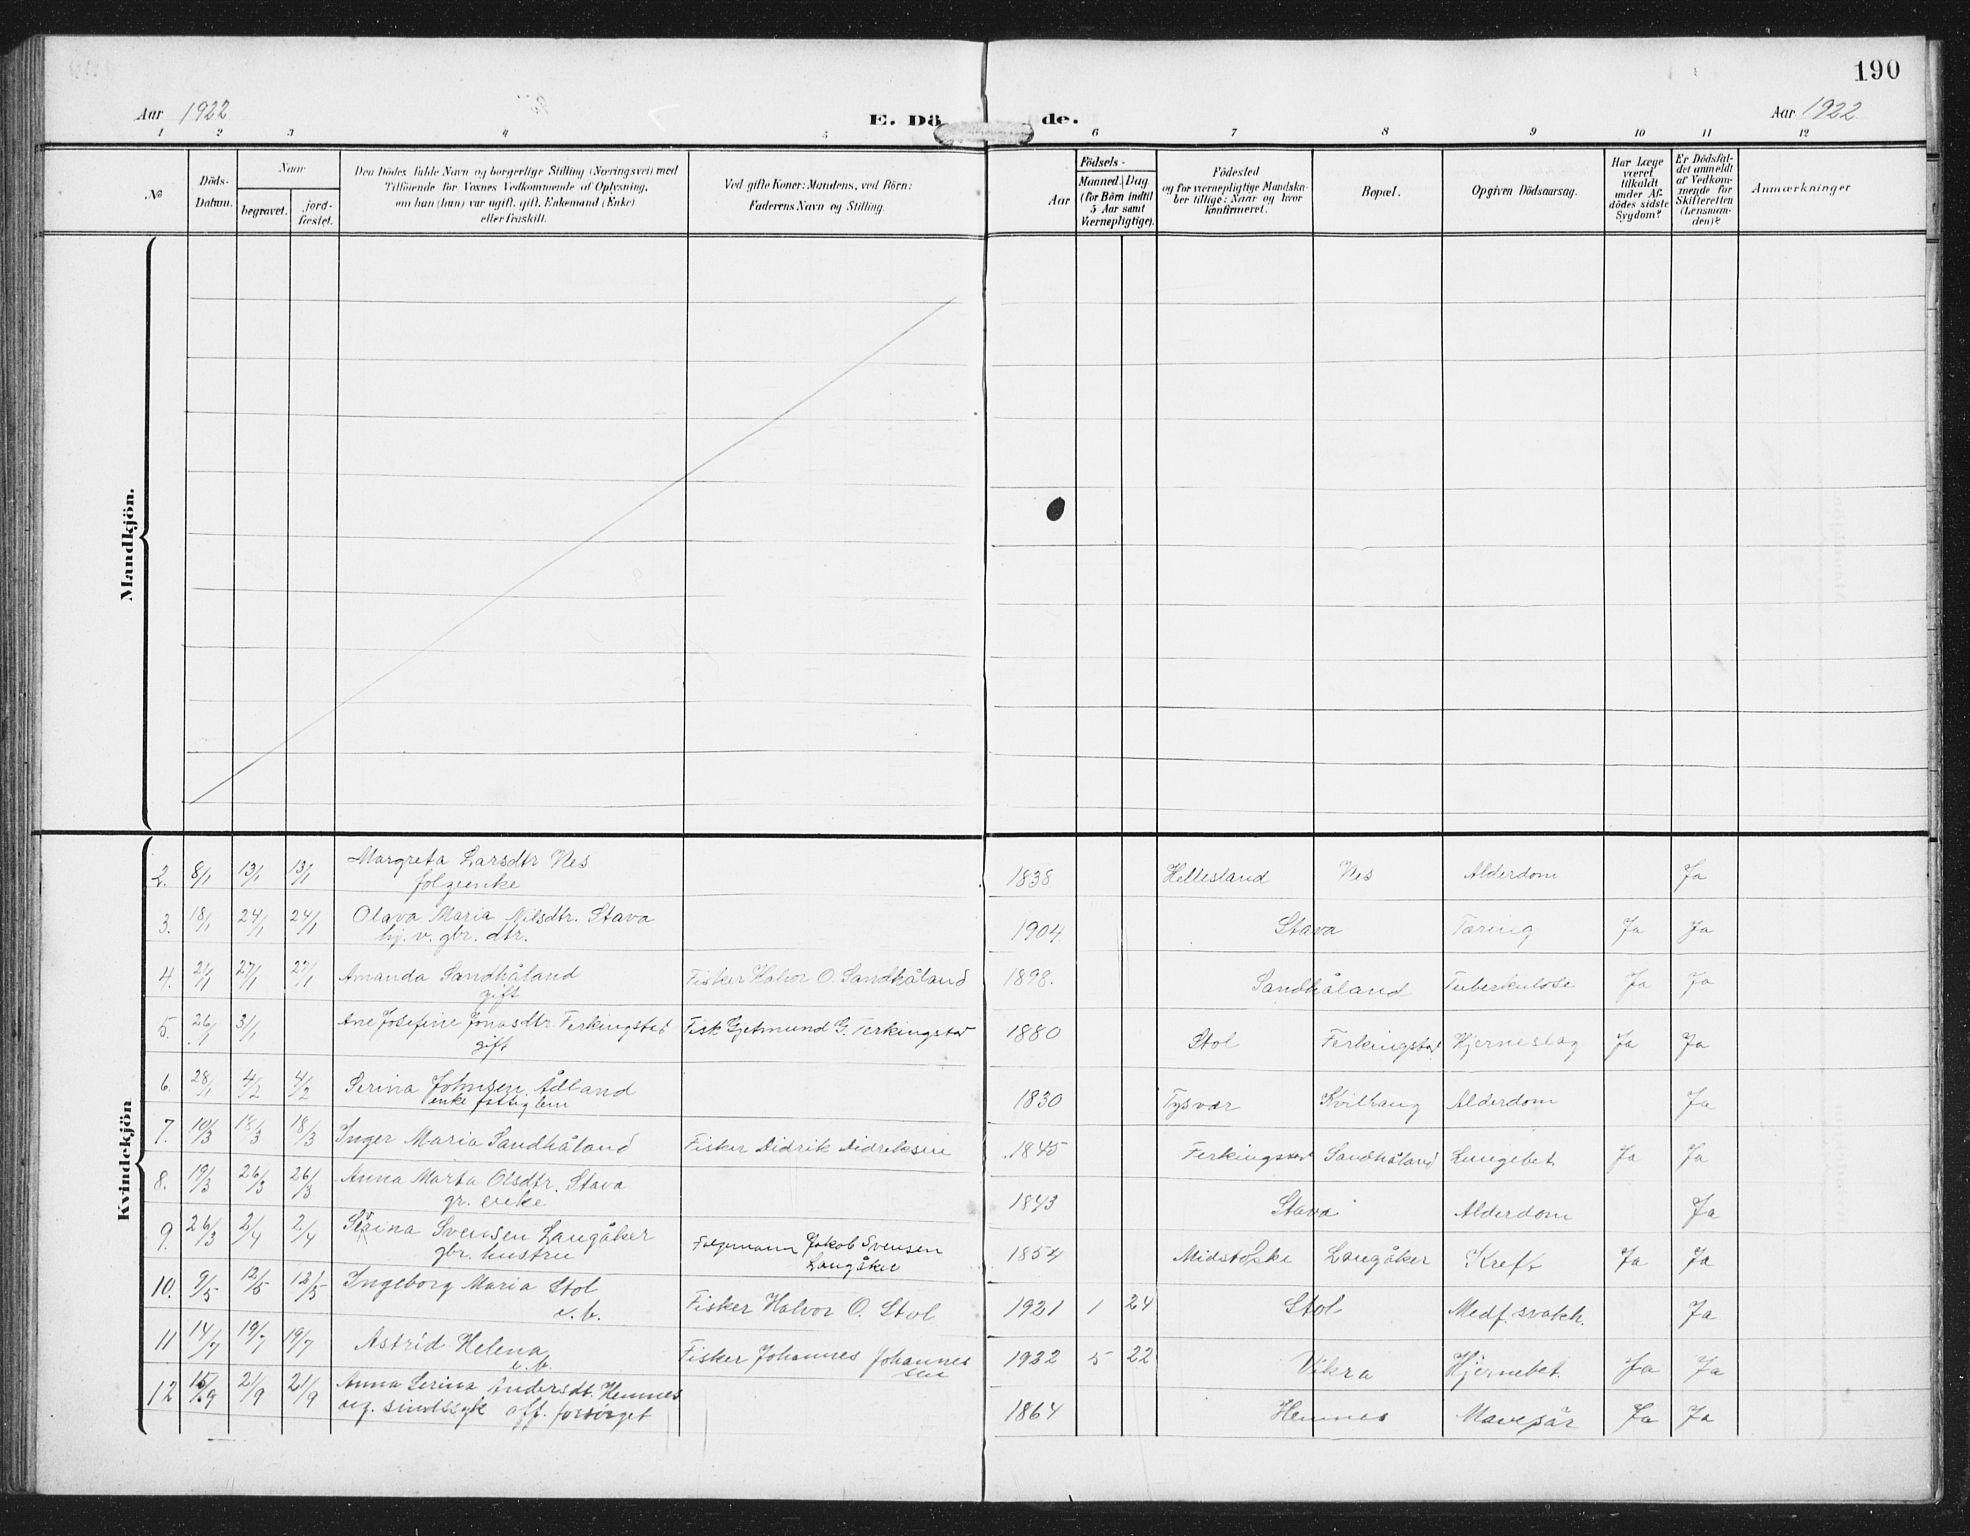 190
Aar 1922
E. Dö de.
Aar 1922
1 2 3 4 5 6 7 8 9 10 11 12
No
Döds-
Datum.
Naar
begravet.
jord-
fæstet.
Den Dødes fulde Navn og borgerlige Stilling (Næringsvei) med
Tilföiende for Voxnes Vedkommende af Oplysning,
om han (hun) var ugift, gift, Enkemand (Enke)
eller fraskilt.
Ved gifte Koner: Mandens, ved Börn:
Faderens Navn og Stilling.
Aar
Födsels-
Maaned. Dag
(for Börn indtil
5 Aar samt
Værnepligtige).
Födested
og for værnepligtige Mandska-
ber tillige: Naar og hvor
konfirmeret.
Bopæl.
Opgiven Dödsaarsag.
Har Læge
været
tilkaldt
under Af-
dödes sidste
Sygdom?
Er Dödsfal-
det anmeldt
af Vedkom-
mende for
Skifteretten
(Lensman-
den)?
Anmærkninger
Mandkjön.
Kvindekjön
2. 8/1 13/1 13/1 Margreta Larsdtr Nes 1838 Hellesland Nes Alderdom Ja
folgeenke
3. 18/1 24/1 24/1 Olava Maria Nilsdtr. Stava 1904 Stava Tæring Ja Ja
hj. v. gbr. dtr.
4. 21/1 27/1 27/1 Amanda Sandhåland Fisker Halvor O. Sandhåland 1898. Sandhåland Tuberkulose Ja Ja
gift
5. 26/1 31/1 Ane Josefine Jonasdtr. Ferkingstad Fisk Gjetmund G. Ferkingstad 1880 Stol Ferkingstad Hjerneslag Ja Ja
gift
6. 28/1 4/2 4/2 Serina Johnsen Ådland 1830 Tysvær Kvilhaug Alderdom Ja
enke fattiglem
7. 10/3 18/3 18/3 Inger Maria Sandhåland Fisker Didrik Didriksen 1845 Ferkingstad Sandhåland Lungebet. Ja Ja
8. 19/3 26/3 26/3 Anna Marta Olsdtr. Stava 1843 Stava Alderdom Ja
gr. enke
9. 26/3 2/4 2/4 Serina Svensen Langåker Folgemann Jakob Svensen 1854 Midstokke Langåker Kreft Ja Ja
gbr. hustru Langåker
10. 9/5 12/5 12/5 Ingeborg Maria Stol Fisker Halvor O. Stol 1921 1 24 Stol Medf. svakh. Ja
e. b.
11 14/7 19/7 19/7 Astrid Helena Fisker Johannes Johannes 1922 5 22 Vikra Hjernebet. Ja Ja
e. b. sen
12 15/9 21/9 21/9 Anna Serina Andersdt. Hemnes 1864 Hemnes Mavesår Ja Ja
ug. sindssyk off. forsörget